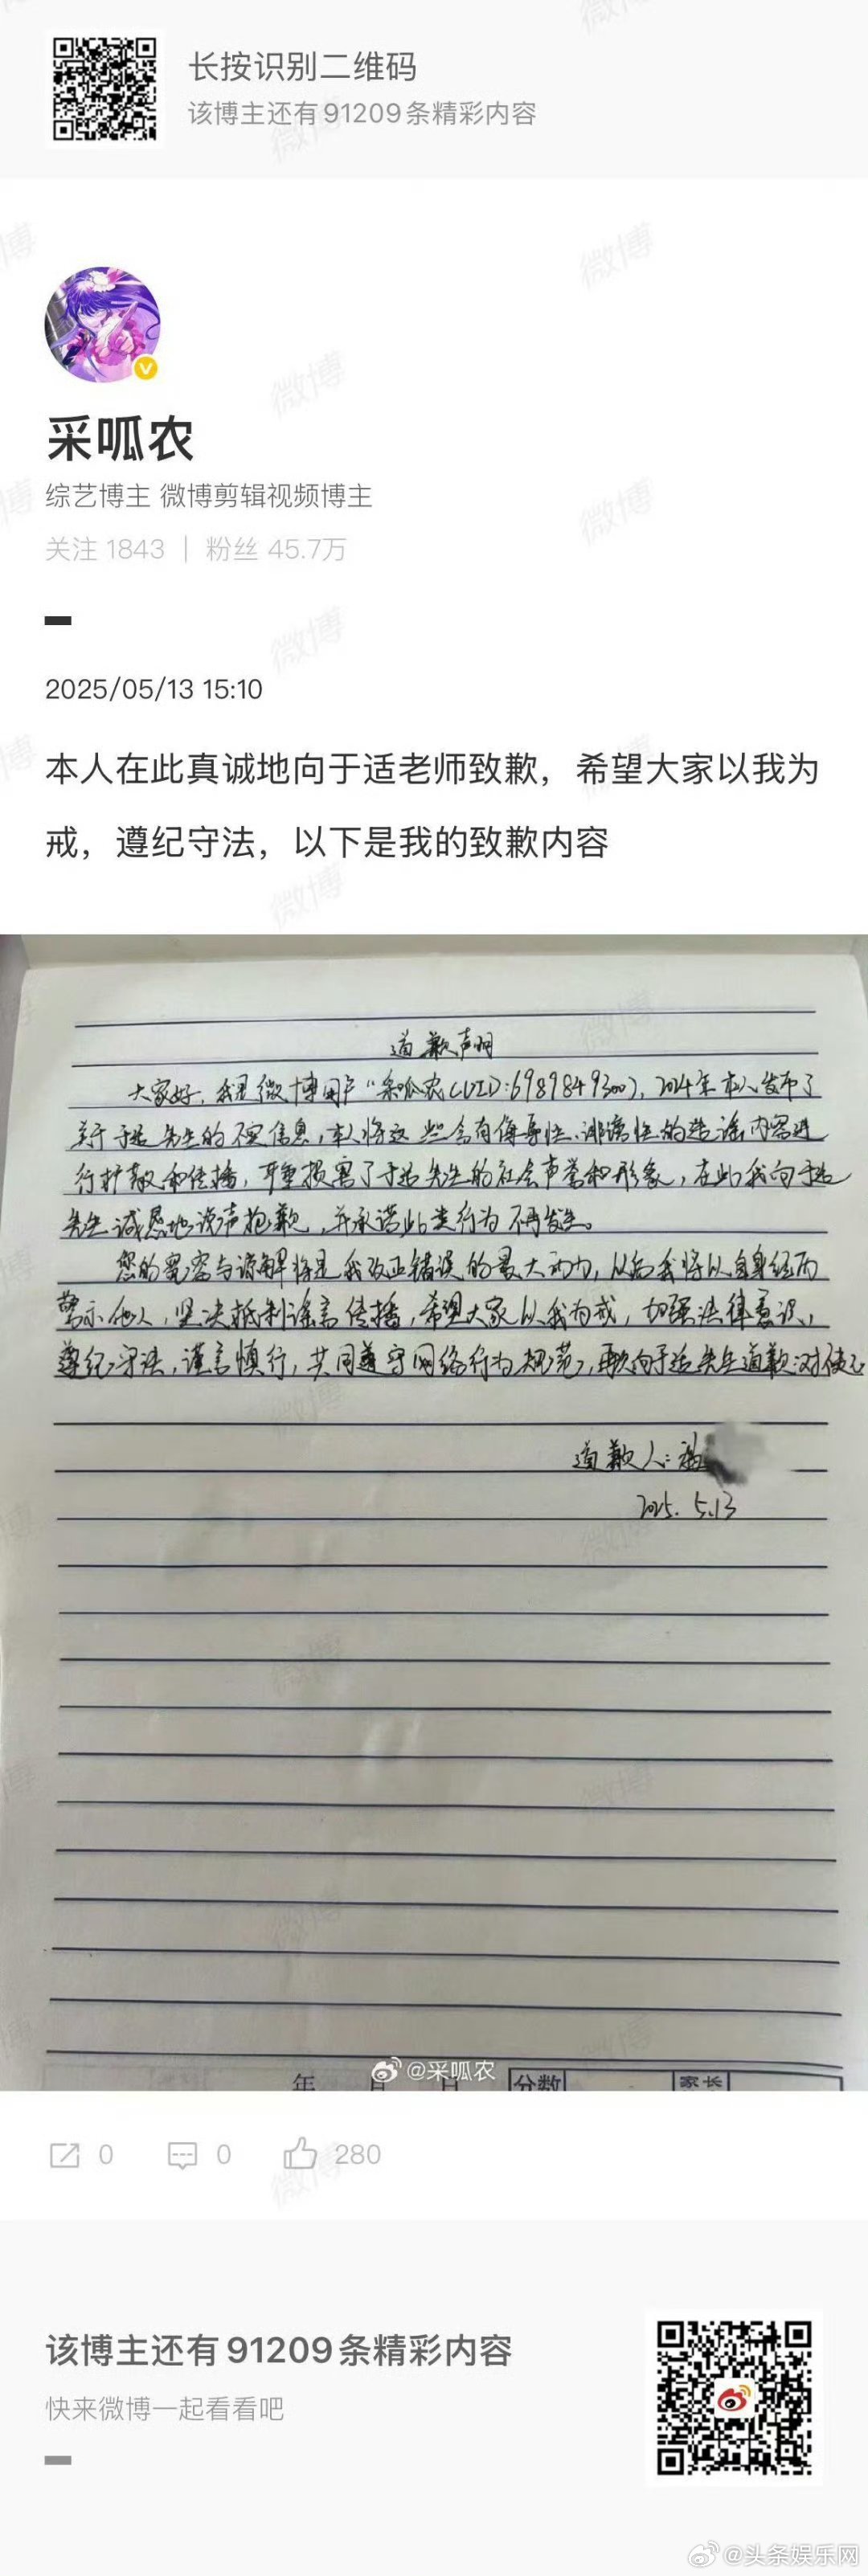 长按识别二维码
该博主还有91209条精彩内容
采呱农
综艺博主 微博剪辑视频博主
关注 1843 | 粉丝 45.7万
2025/05/13 15:10
本人在此真诚地向于适老师致歉，希望大家以我为
戒，遵纪守法，以下是我的致歉内容
道歉声明
大家好，我是微博用户“采呱农(UID:6989849300)，2024年本人发布了
关于于适先生的不实信息，本人将这些含有侮辱性、诽谤性的造谣内容进
行扩散和传播，严重损害了于适先生的社会声誉和形象，在此我向于适
先生诚恳地说声抱歉，并承诺此类行为不再发生。
您的宽容与谅解将是我改正错误的最大动力，以后我将以自身经历
警示他人，坚决抵制谣言传播，希望大家以我为戒，加强法律意识，
遵纪守法，谨言慎行，共同遵守网络行为规范，再次向于适先生道歉，对
道歉人：
2025.5.13
@采呱农
年 月 日 分数 家长
0 0 280
该博主还有91209条精彩内容
快来微博一起看看吧
@头条娱乐网